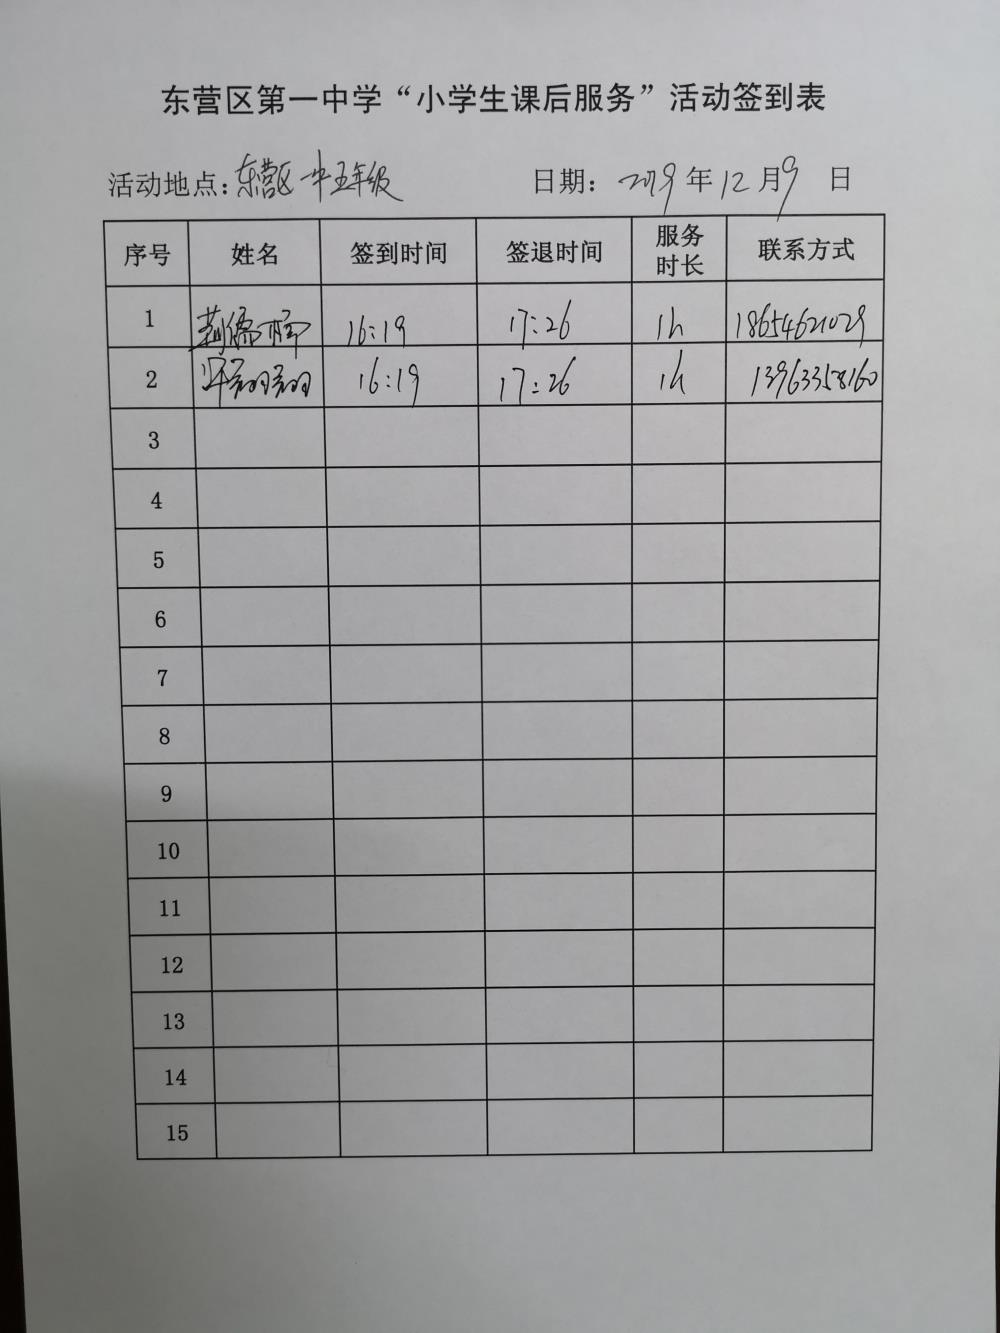 东营区第一中学“小学生课后服务”活动签到表
活动地点：东营区一中五年级 日期：2019年12月9日
序号 姓名 签到时间 签退时间 服务时长 联系方式
1 16:19 17:26 1h 18654621029
2 16:19 17:26 1h 13963358160
3
4
5
6
7
8
9
10
11
12
13
14
15